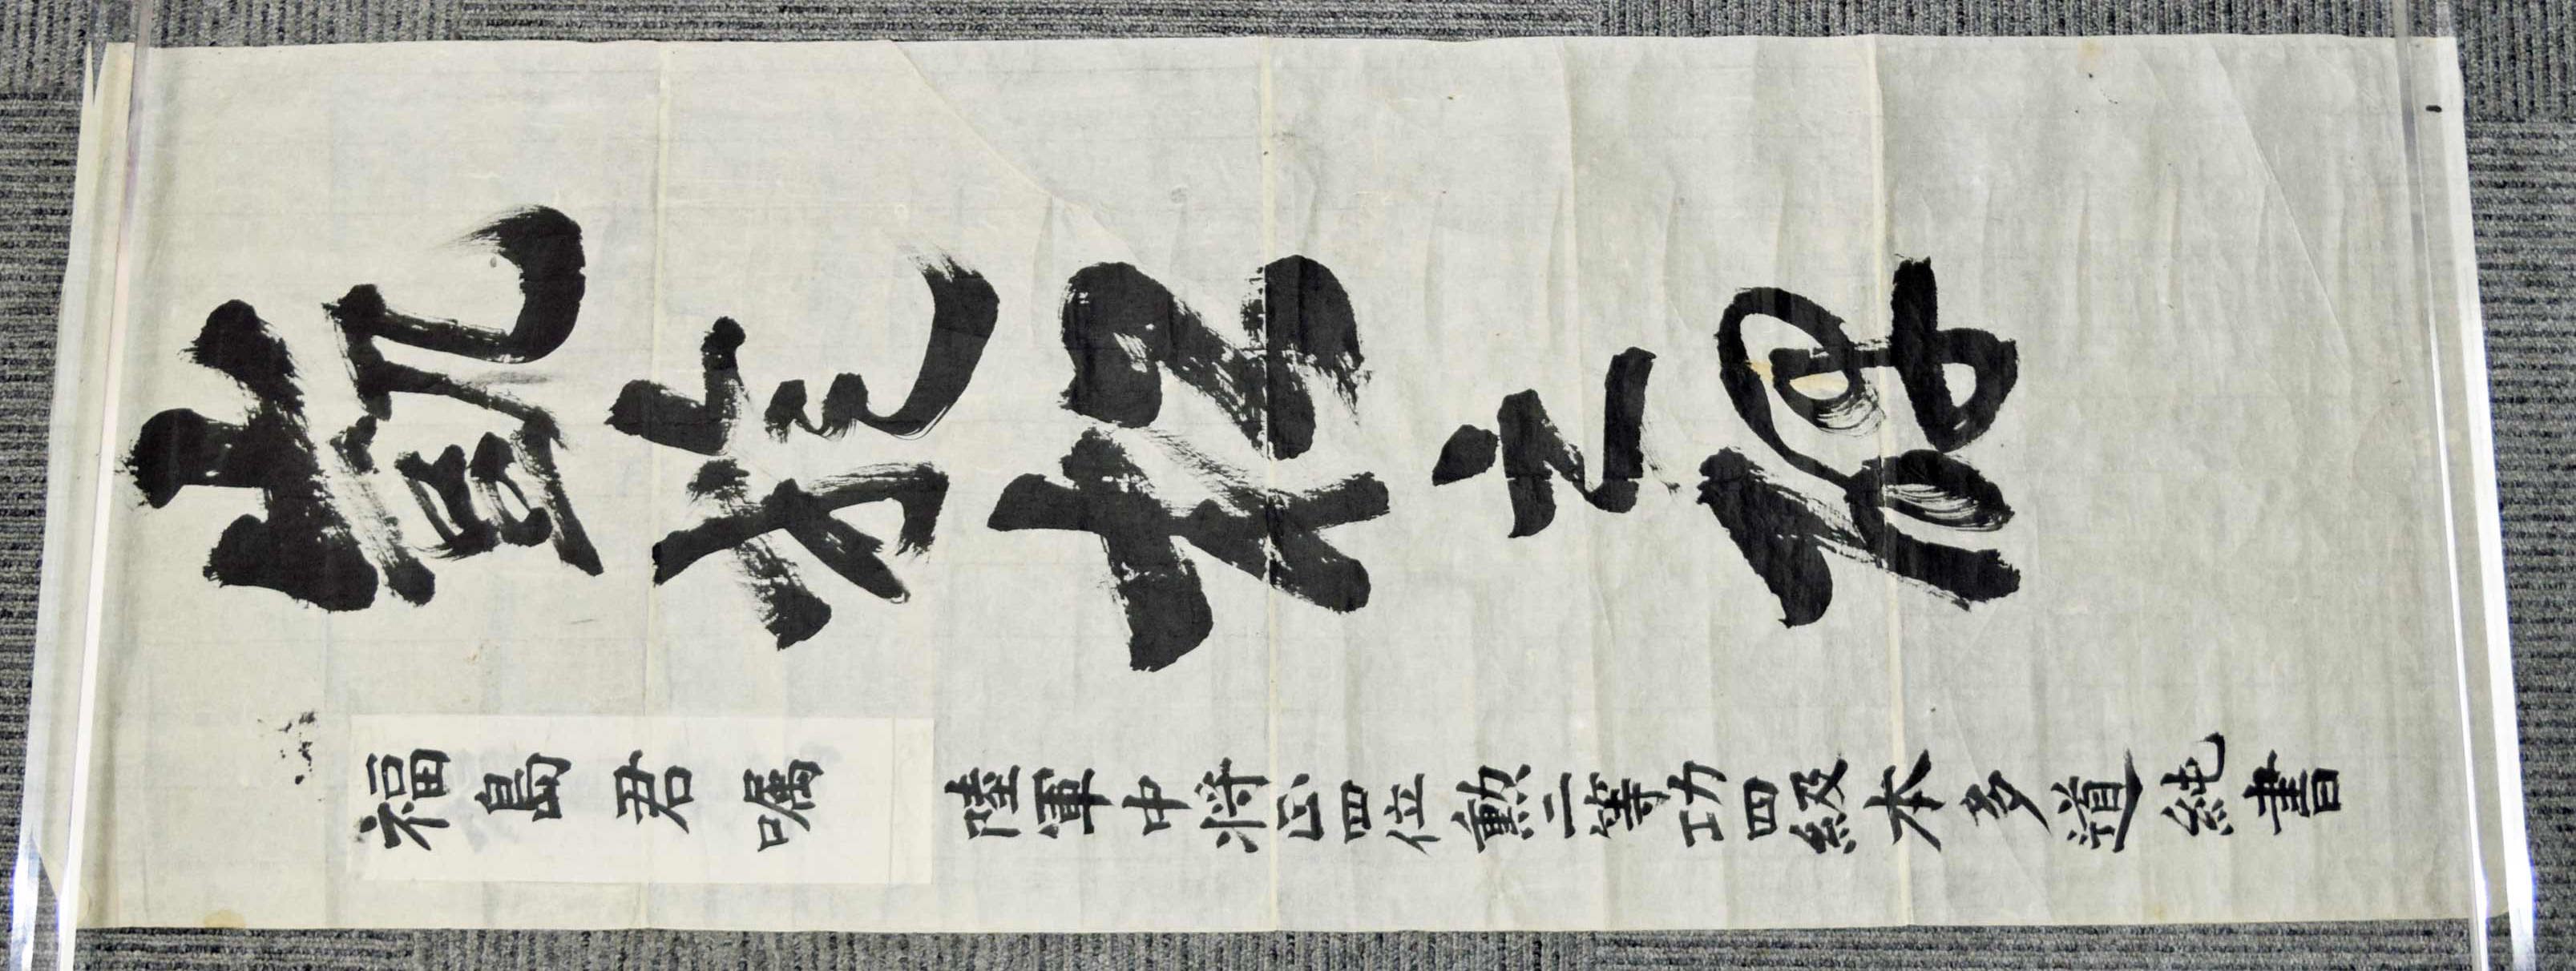 凱旋松之碑
福島君嘱　陸軍中将正四位勲二等功四級本多道純書